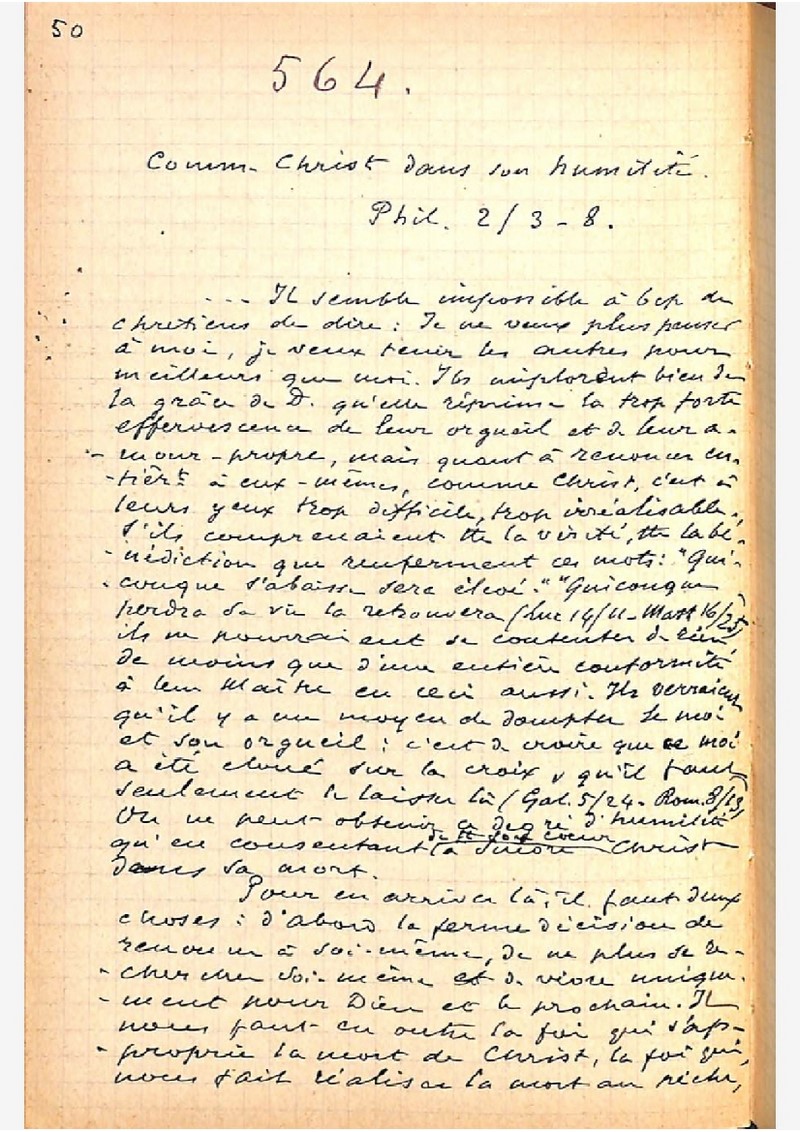 50
564.
Comm. Christ dans son humilité.
Phil. 2/3-8.
... Il semble impossible à bcp de
chrétiens de dire : Je ne veux plus penser
à moi, je veux tenir les autres pour
meilleurs que moi. Ils implorent bien de
la grâce de D. qu'elle réprime la trop forte
effervescence de leur orgueil et de leur a-
-mour-propre, mais quant à renoncer en-
-tièrt à eux-mêmes, comme Christ, c'est à
leurs yeux trop difficile, trop irréalisable.
S'ils comprenaient tte la vérité, tte la bé-
-nédiction que renferment ces mots: "Qui-
-conque s'abaisse sera élevé." "Quiconque
perdra sa vie la retrouvera (Luc 14/11 - Matt 16/25)
ils ne pourraient se contenter de rien
de moins que d'une entière conformité
à leur Maître en ceci aussi. Ils verraient
qu'il y a un moyen de dompter le moi
et son orgueil : c'est de croire que ce moi
a été cloué sur la croix & qu'il faut
seulement le laisser là (Gal. 5/24 - Rom. 8/13)
On ne peut obtenir ce degré d'humilité
de tt son coeur
qu'en consentant à suivre Christ
dans sa mort.
Pour en arriver là, il faut deux
choses : d'abord la ferme décision de
renoncer à soi-même, de ne plus se re-
-chercher soi-même et de vivre unique-
-ment pour Dieu et le prochain. Il
nous faut en outre la foi qui s'ap-
-proprie la mort de Christ, la foi qui
nous fait réaliser la mort au péché,